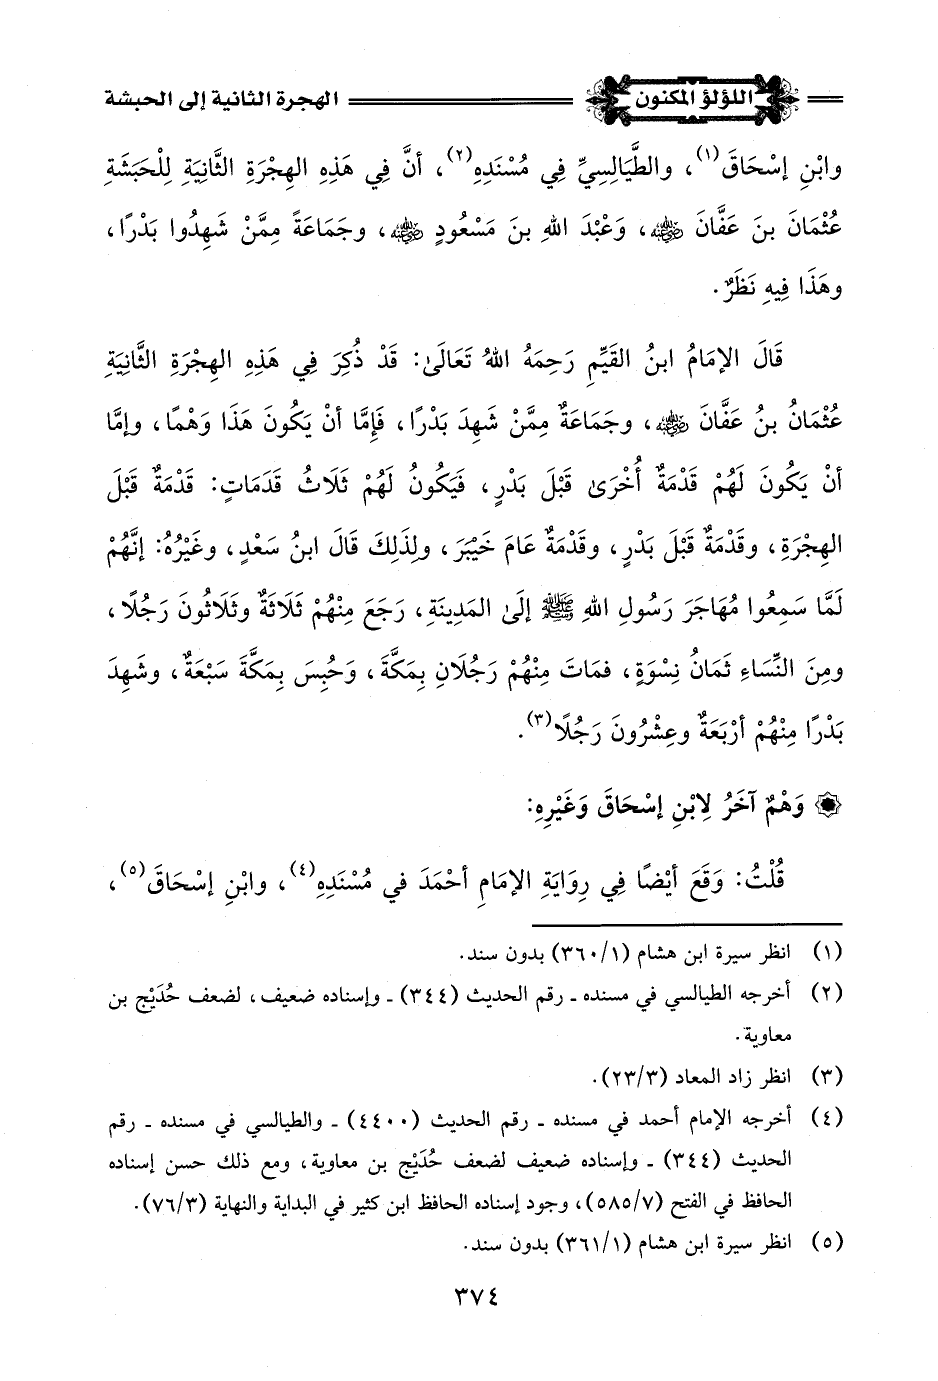 اللؤلؤ المكنون الهجرة الثانية إلى الحبشة
وابْنِ إسْحَاقَ(١)، والطَّيَالِسِيِّ فِي مُسْنَدِهِ(٢)، أنَّ فِي هَذِهِ الهِجْرَةِ الثَّانِيَةِ لِلْحَبَشَةِ
عُثْمَانَ بنَ عَفَّانَ رضي الله عنه، وَعَبْدَ اللهِ بنَ مَسْعُودٍ رضي الله عنه، وجَمَاعَةً مِمَّنْ شَهِدُوا بَدْرًا،
وهَذَا فِيهِ نَظَرٌ.
قَالَ الإمَامُ ابنُ القَيِّمِ رَحِمَهُ اللهُ تَعَالَىٰ: قَدْ ذُكِرَ فِي هَذِهِ الهِجْرَةِ الثَّانِيَةِ
عُثْمَانُ بنُ عَفَّانَ رضي الله عنه، وجَمَاعَةٌ مِمَّنْ شَهِدَ بَدْرًا، فَإِمَّا أنْ يَكُونَ هَذَا وَهْمًا، وإمَّا
أنْ يَكُونَ لَهُمْ قَدْمَةٌ أُخْرَىٰ قَبْلَ بَدْرٍ، فَيَكُونُ لَهُمْ ثَلَاثُ قَدَمَاتٍ: قَدْمَةٌ قَبْلَ
الهِجْرَةِ، وقَدْمَةٌ قَبْلَ بَدْرٍ، وقَدْمَةٌ عَامَ خَيْبَرَ، ولِذَلِكَ قَالَ ابنُ سَعْدٍ، وغَيْرُهُ: إنَّهُمْ
لَمَّا سَمِعُوا مُهَاجَرَ رَسُولِ اللهِ ﷺ إلَىٰ المَدِينَةِ، رَجَعَ مِنْهُمْ ثَلَاثَةٌ وثَلَاثُونَ رَجُلًا،
ومِنَ النِّسَاءِ ثَمَانُ نِسْوَةٍ، فمَاتَ مِنْهُمْ رَجُلَانِ بِمَكَّةَ، وَحُبِسَ بِمَكَّةَ سَبْعَةٌ، وشَهِدَ
بَدْرًا مِنْهُمْ أرْبَعَةٌ وعِشْرُونَ رَجُلًا(٣).
وَهْمٌ آخَرُ لِابْنِ إسْحَاقَ وَغَيْرِهِ:
قُلْتُ: وَقَعَ أيْضًا فِي رِوَايَةِ الإمَامِ أحْمَدَ في مُسْنَدِهِ(٤)، وابْنِ إسْحَاقَ(٥)،
(١) انظر سيرة ابن هشام (٣٦٠/١) بدون سند.
(٢) أخرجه الطيالسي في مسنده ـ رقم الحديث (٣٤٤) ـ وإسناده ضعيف، لضعف حُدَيْج بن
معاوية.
(٣) انظر زاد المعاد (٢٣/٣).
(٤) أخرجه الإمام أحمد في مسنده ـ رقم الحديث (٤٤٠٠) ـ والطيالسي في مسنده ـ رقم
الحديث (٣٤٤) ـ وإسناده ضعيف لضعف حُدَيْج بن معاوية، ومع ذلك حسن إسناده
الحافظ في الفتح (٥٨٥/٧)، وجود إسناده الحافظ ابن كثير في البداية والنهاية (٧٦/٣).
(٥) انظر سيرة ابن هشام (٣٦١/١) بدون سند.
٣٧٤